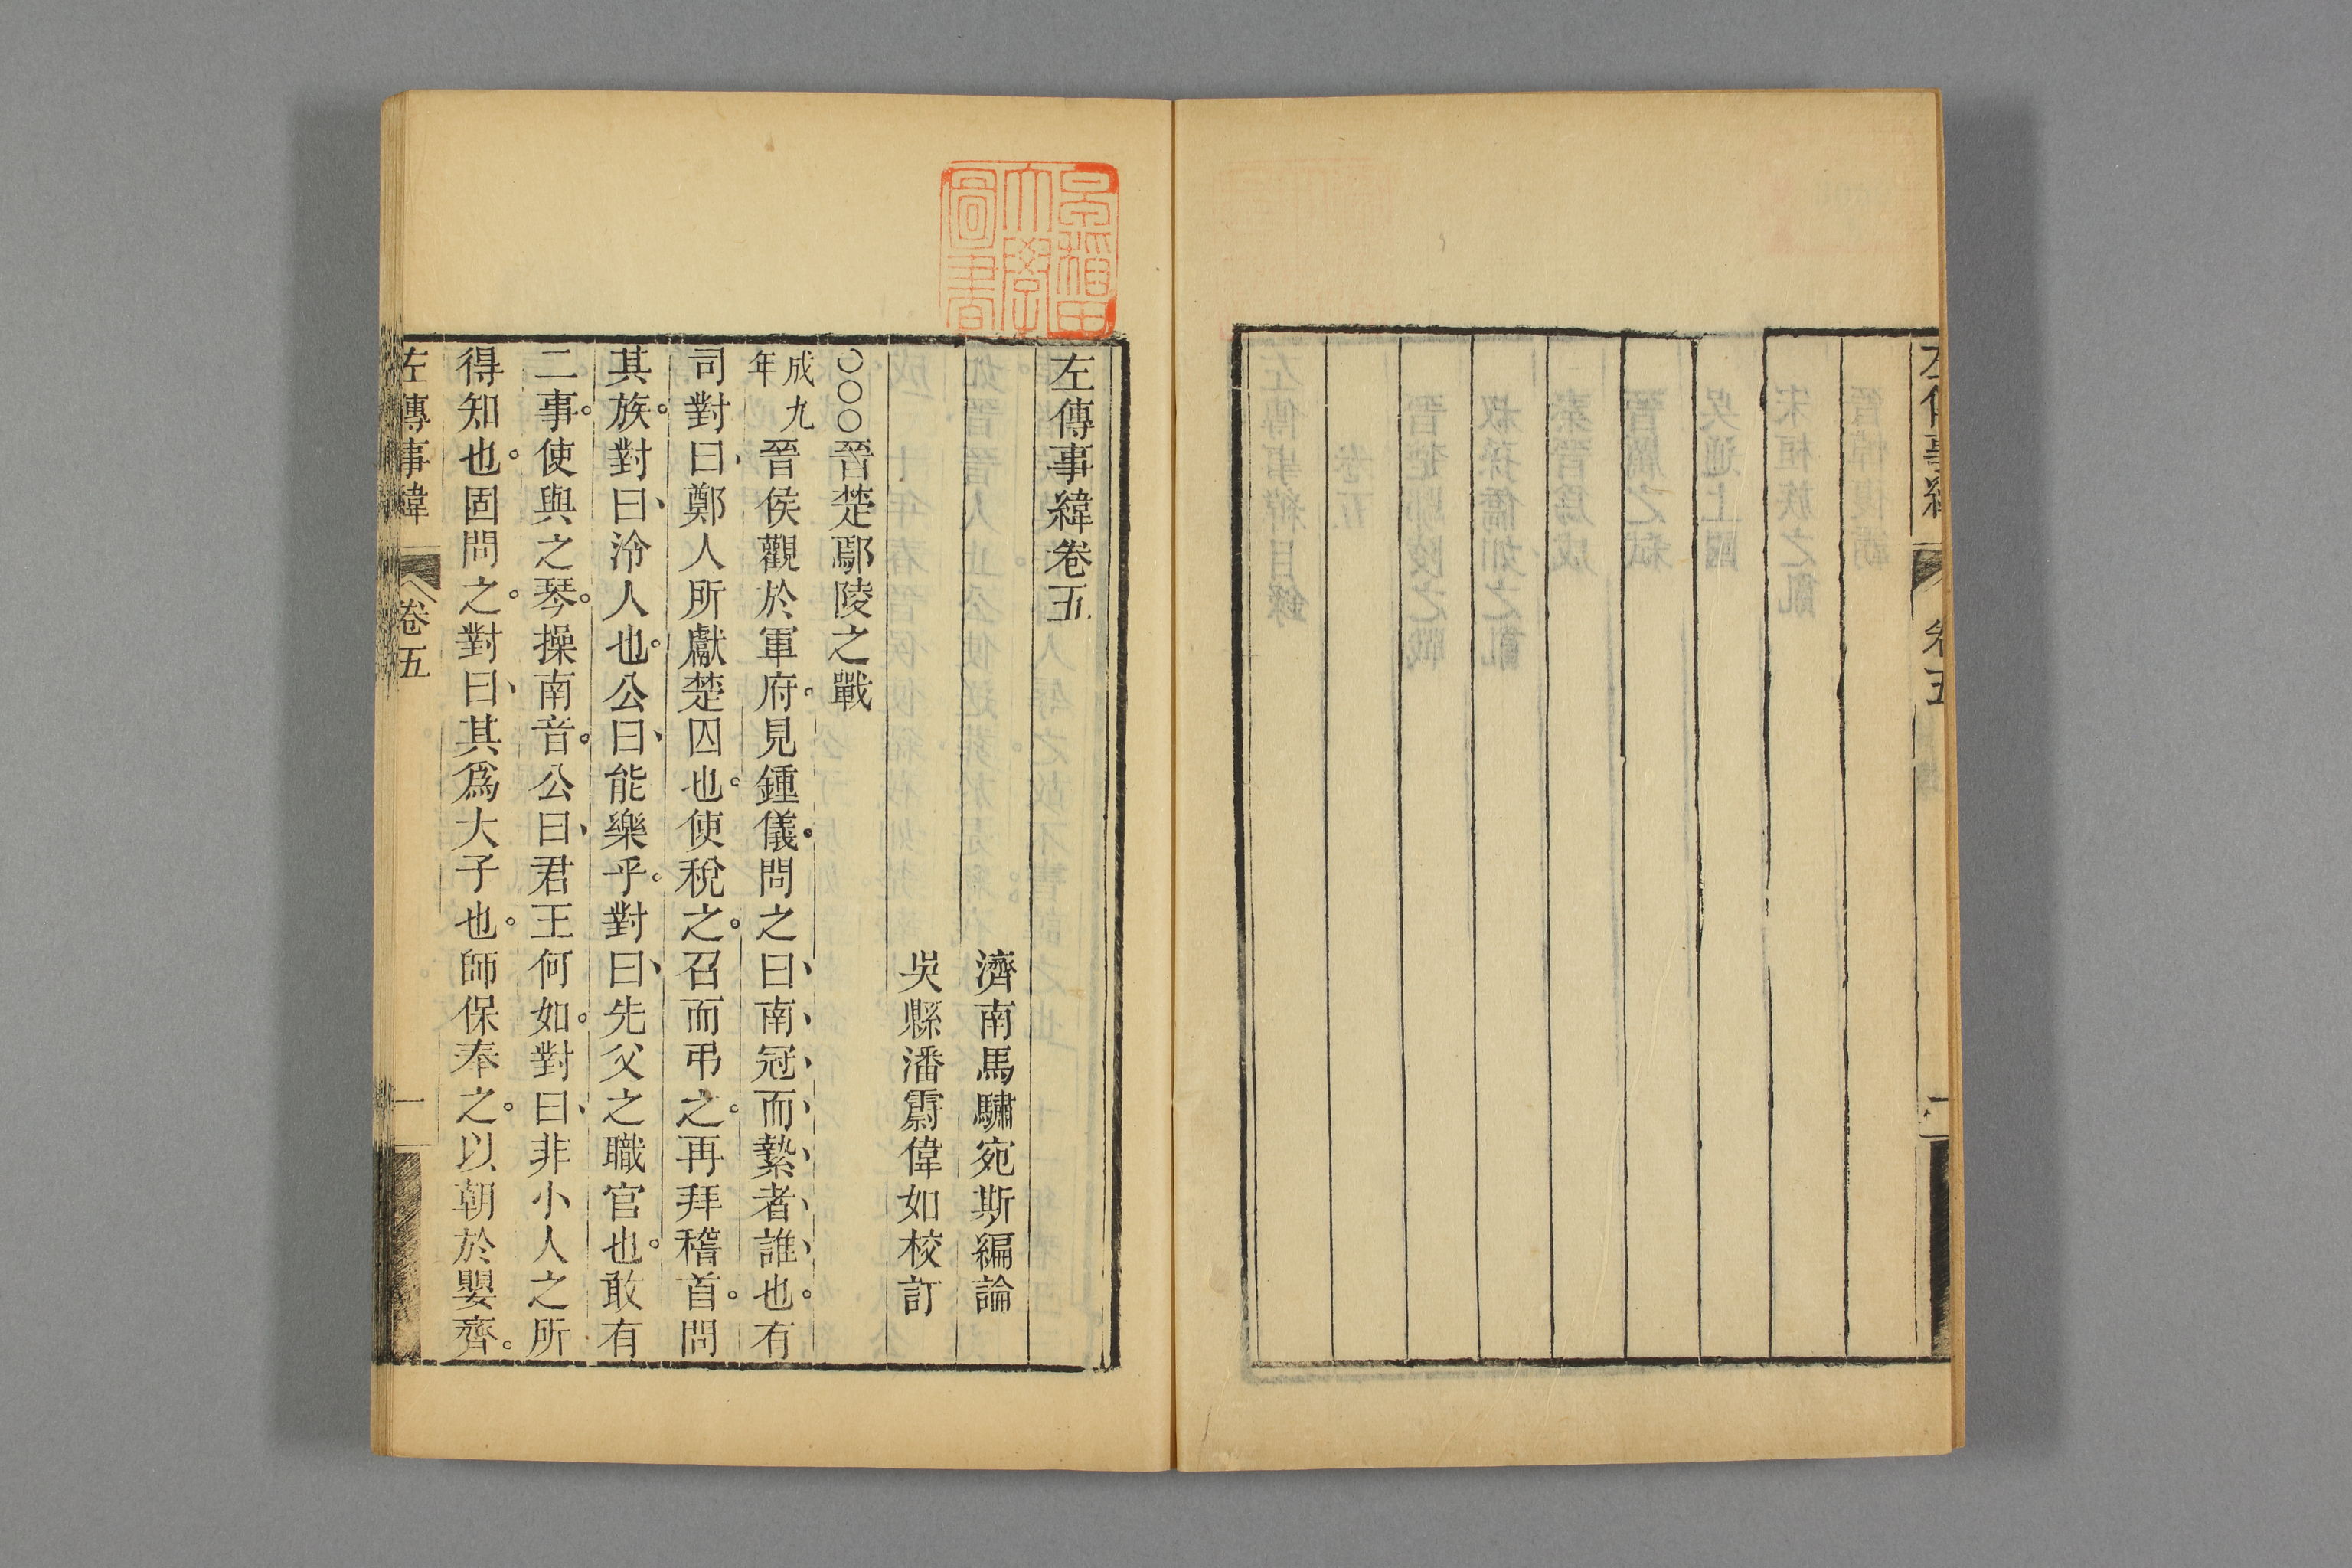 左傳事緯
卷五
早稻田
大學
圖書
左傳事緯卷五
濟南馬驌宛斯編論
吳縣潘霨偉如校訂
○○○晉楚鄢陵之戰
成九年晉侯觀於軍府。見鍾儀。問之曰、南、冠、而、縶、者、誰、也。有
司對曰、鄭人所獻楚囚也。使稅之。召而弔之。再拜稽首。問
其族。對曰、泠人也。公曰、能樂乎。對曰、先父之職官也。敢有
二事。使與之琴。操南音。公曰、君王何如。對曰、非小人之所
得知也。固問之。對曰、其爲大子也。師保奉之。以朝於嬰齊。
左傳事緯
卷五
一